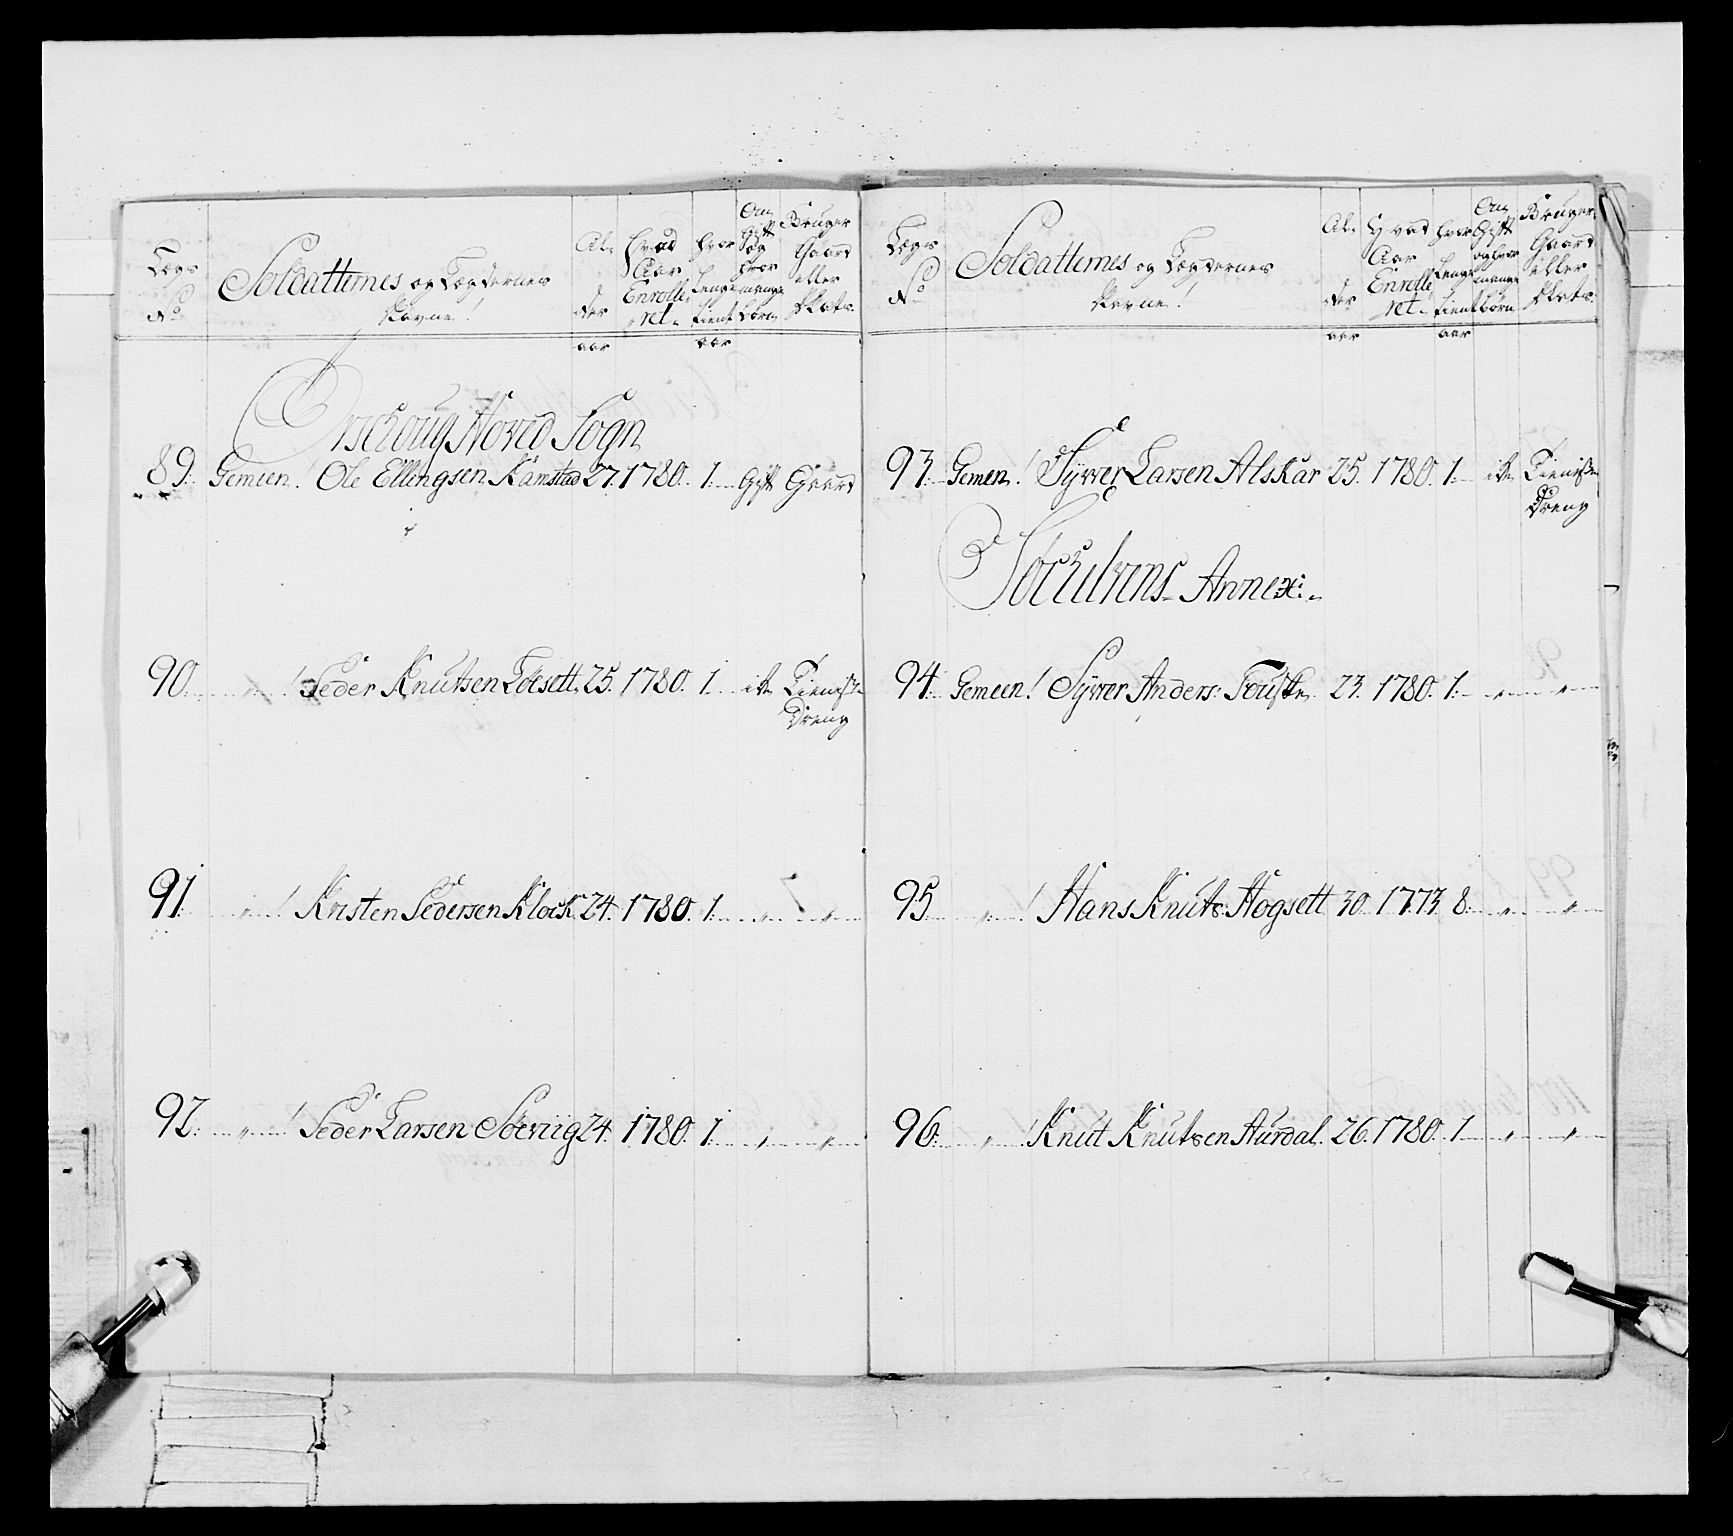 Lægs
No
Soldatternes og Lægdernes
Navne!
Al-
der
aar
Hvad
Aar
Enrolle
ret.
hvor
Lenge
tient
aar
Om
Gift
og
hvor
mange
børn
Bruger
Gaard
eller
Plads.
Ørschoug Hoved Sogn
89. Gemeen! Ole Ellingsen Kamstad 27. 1780. 1. Gift Gaard
90. " ! Peder Knutsen Tøesett. 25. 1780. 1. ike Tieniste
Dreng
91. " ! Kristen Pedersen Klock 24. 1780. 1. " "
92. " ! Peder Larsen Søeviig 24. 1780. 1. " "
Lægs
No
Soldatternes og Lægdernes
Navne!
Al-
der
aar
Hvad
Aar
Enrolle
ret.
hvor
Lenge
tient
aar
Om
Gift
og hvor
mange
børn
Bruger
Gaard
eller
Plads.
93. Gemen! Syver Larsen Alskar 25. 1780. 1. ike Tieniste
Dreng
Annex:
94. Gemeen! Syver Anders: Fouske 23. 1780. 1. " "
95 " ! Hans Knuts: Hogsett 30. 1773 8. " "
96. " ! Knut Knutsen Aurdal. 26. 1780. 1 " "